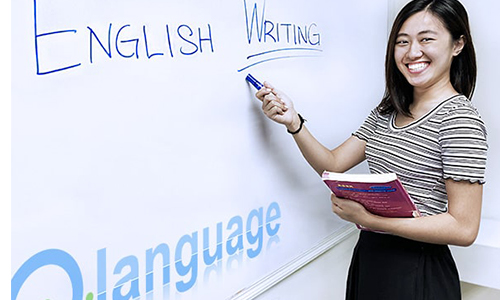 ENGLISH WRITING
language